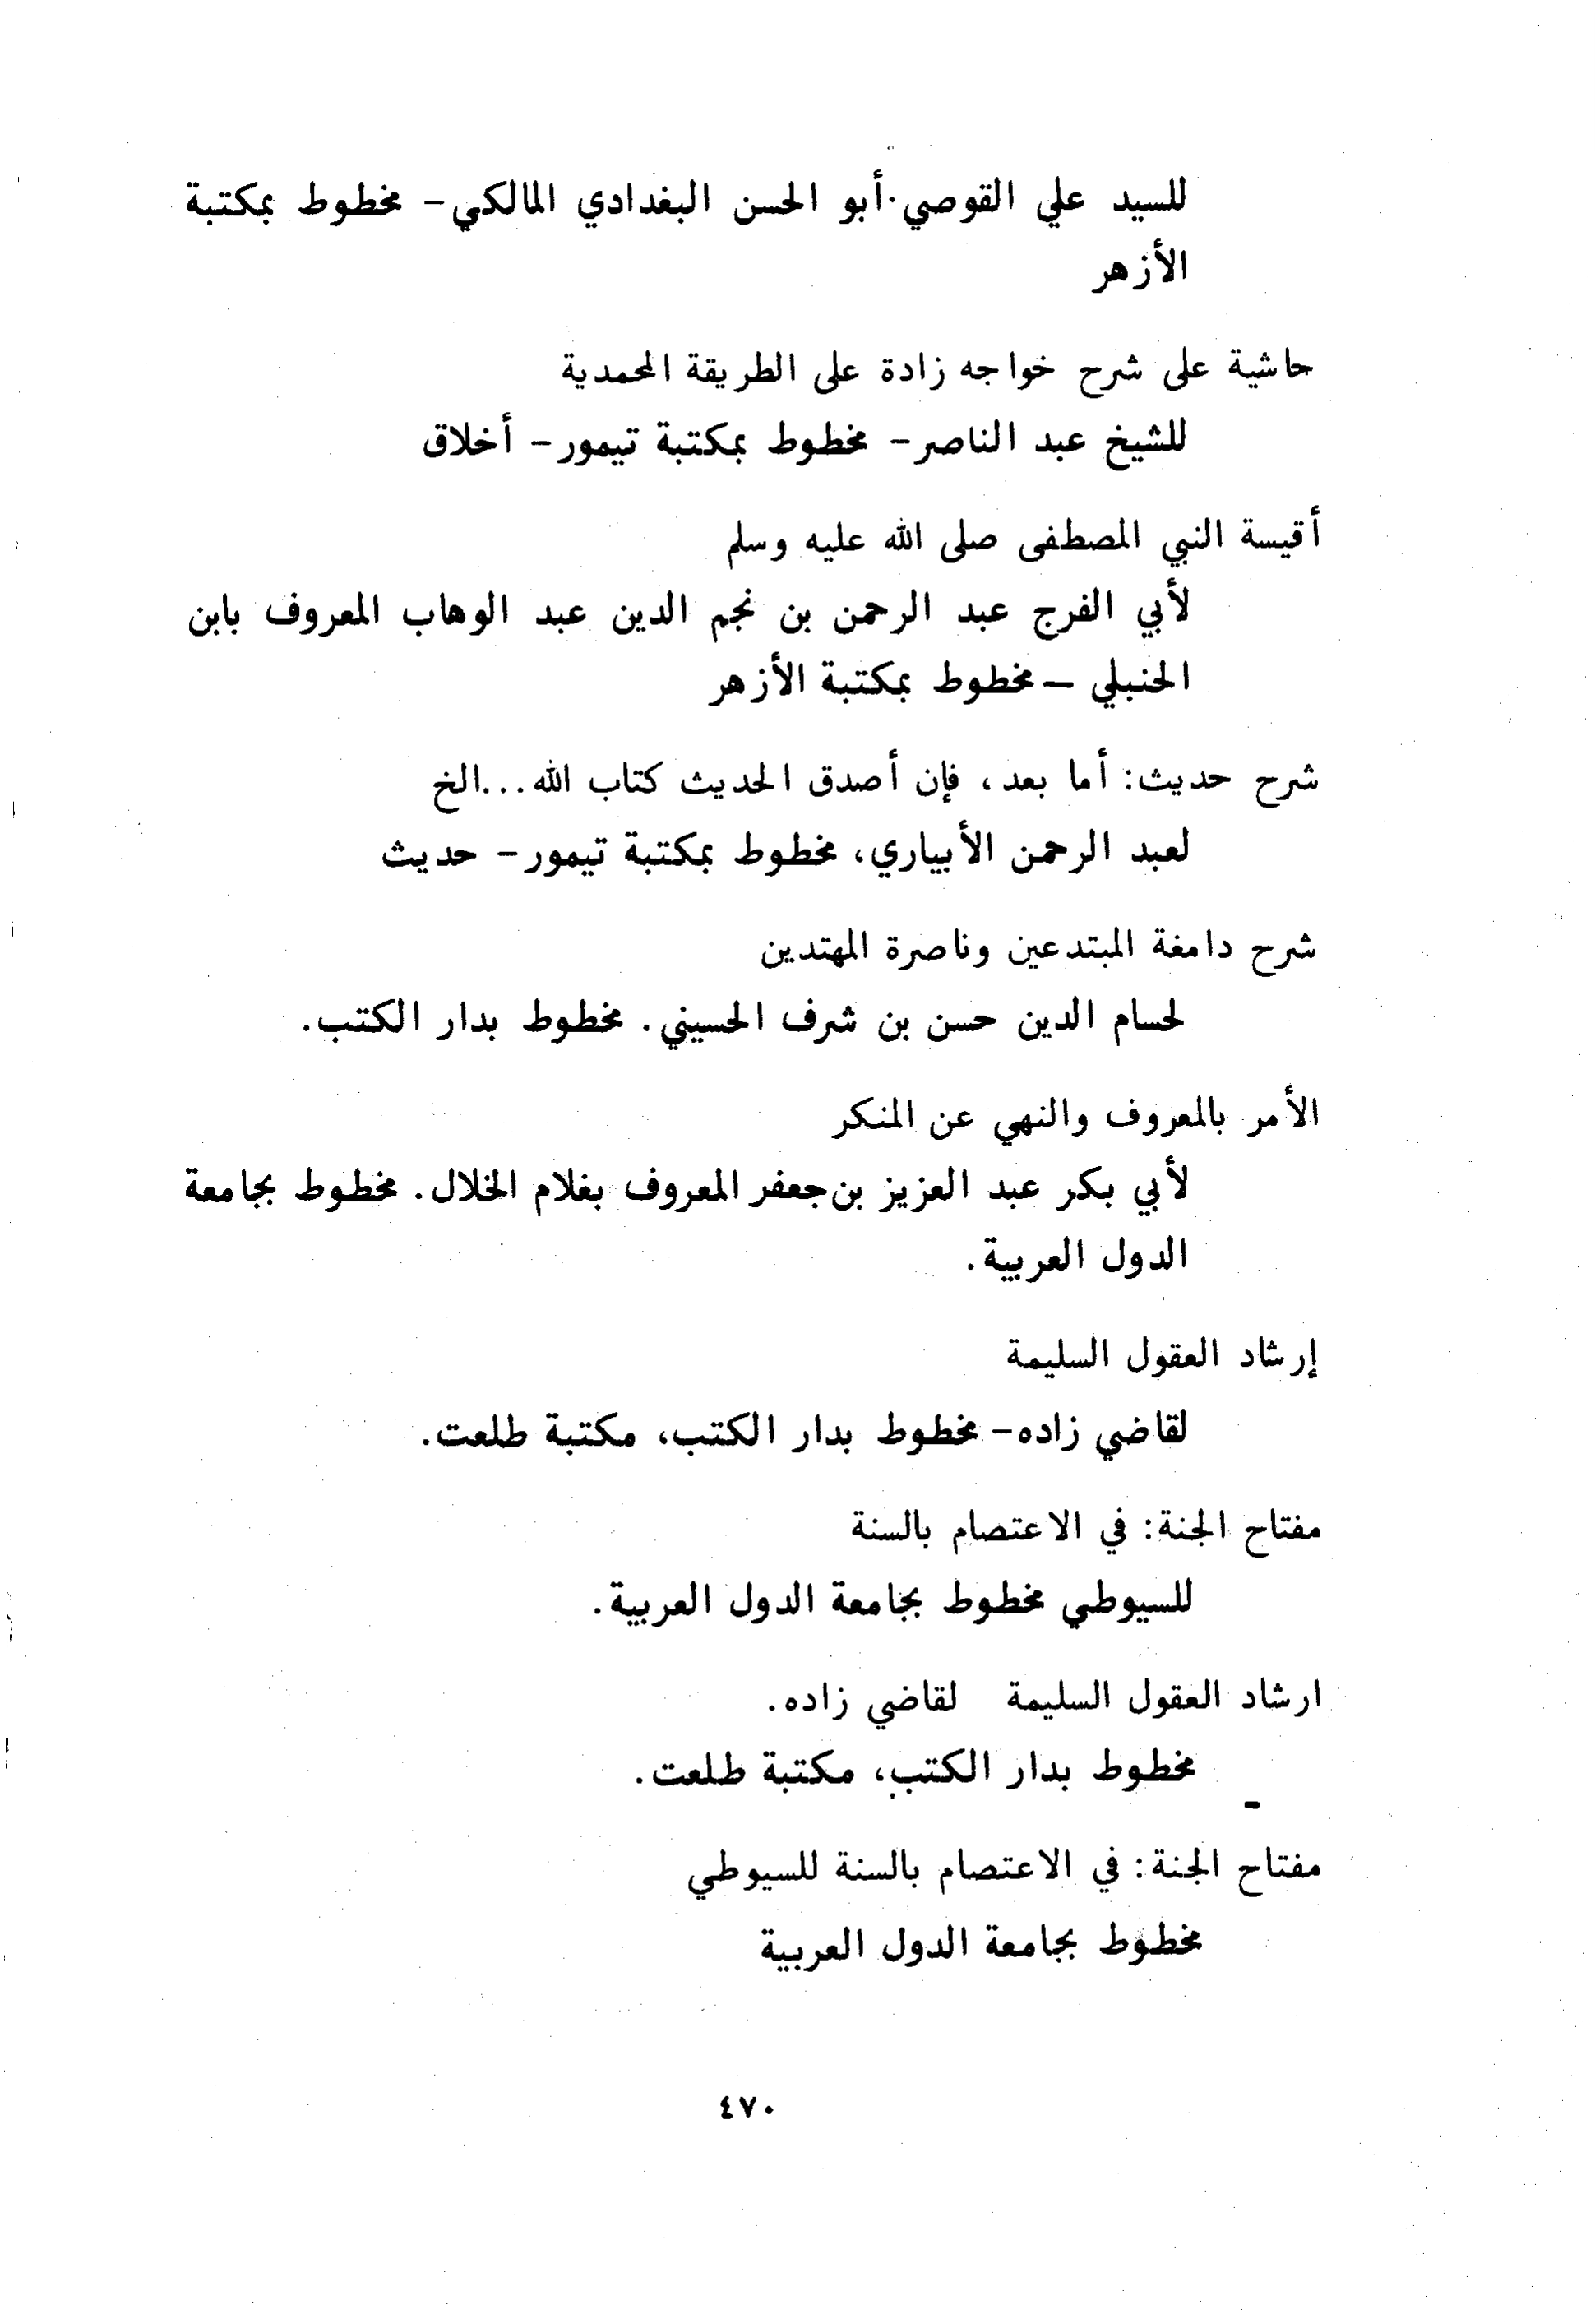 للسيد علي القوصي·أبو الحسن البغدادي المالكي- مخطوط بمكتبة
الأزهر
حاشية على شرح خواجه زادة على الطريقة المحمدية
للشيخ عبد الناصر- مخطوط بمكتبة تيمور- أخلاق
أقيسة النبي المصطفى صلى الله عليه وسلم
لأبي الفرج عبد الرحمن بن نجم الدين عبد الوهاب المعروف بابن
الحنبلي -مخطوط بمكتبة الأزهر
شرح حديث: أما بعد، فإن أصدق الحديث كتاب الله...الخ
لعبد الرحمن الأبياري، مخطوط بمكتبة تيمور- حديث
شرح دامغة المبتدعين وناصرة المهتدين
لحسام الدين حسن بن شرف الحسيني. مخطوط بدار الكتب.
الأمر بالمعروف والنهي عن المنكر
لأبي بكر عبد العزيز بن جعفر المعروف بغلام الخلال. مخطوط بجامعة
الدول العربية.
إرشاد العقول السليمة
لقاضي زاده- مخطوط بدار الكتب، مكتبة طلعت.
مفتاح الجنة: في الاعتصام بالسنة
للسيوطي مخطوط بجامعة الدول العربية.
ارشاد العقول السليمة لقاضي زاده.
مخطوط بدار الكتب، مكتبة طلعت.
مفتاح الجنة: في الاعتصام بالسنة للسيوطي
مخطوط بجامعة الدول العربية
٤٧٠